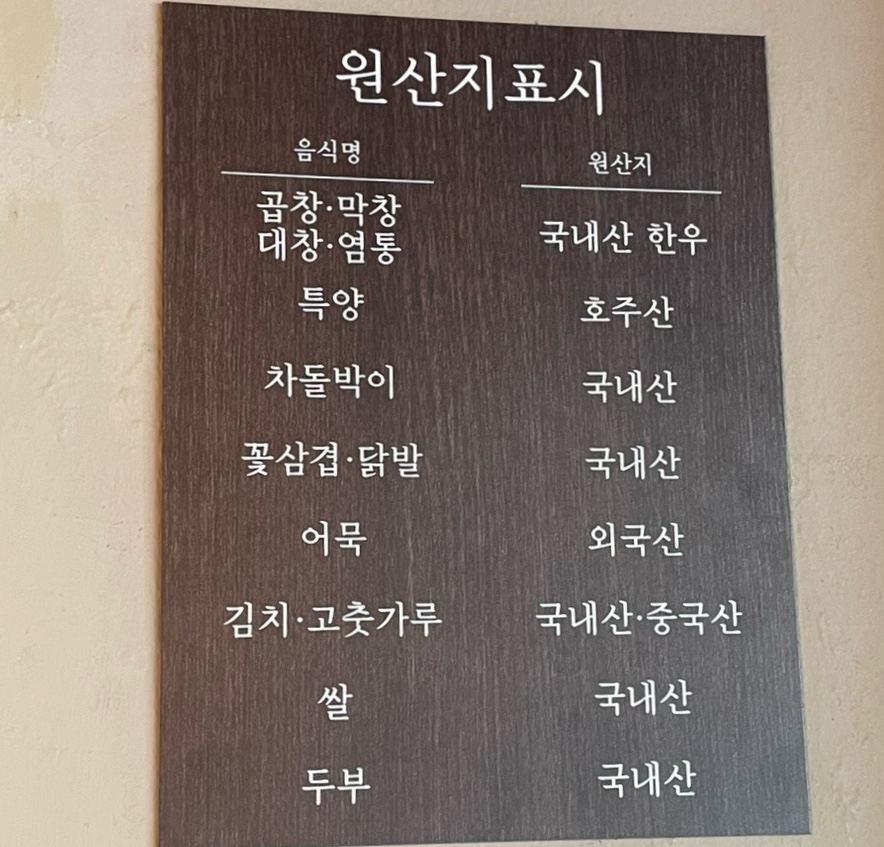 원산지표시
음식명 원산지
곱창·막창
대창·염통 국내산 한우
특양 호주산
차돌박이 국내산
꽃삼겹·닭발 국내산
어묵 외국산
김치·고춧가루 국내산·중국산
쌀 국내산
두부 국내산